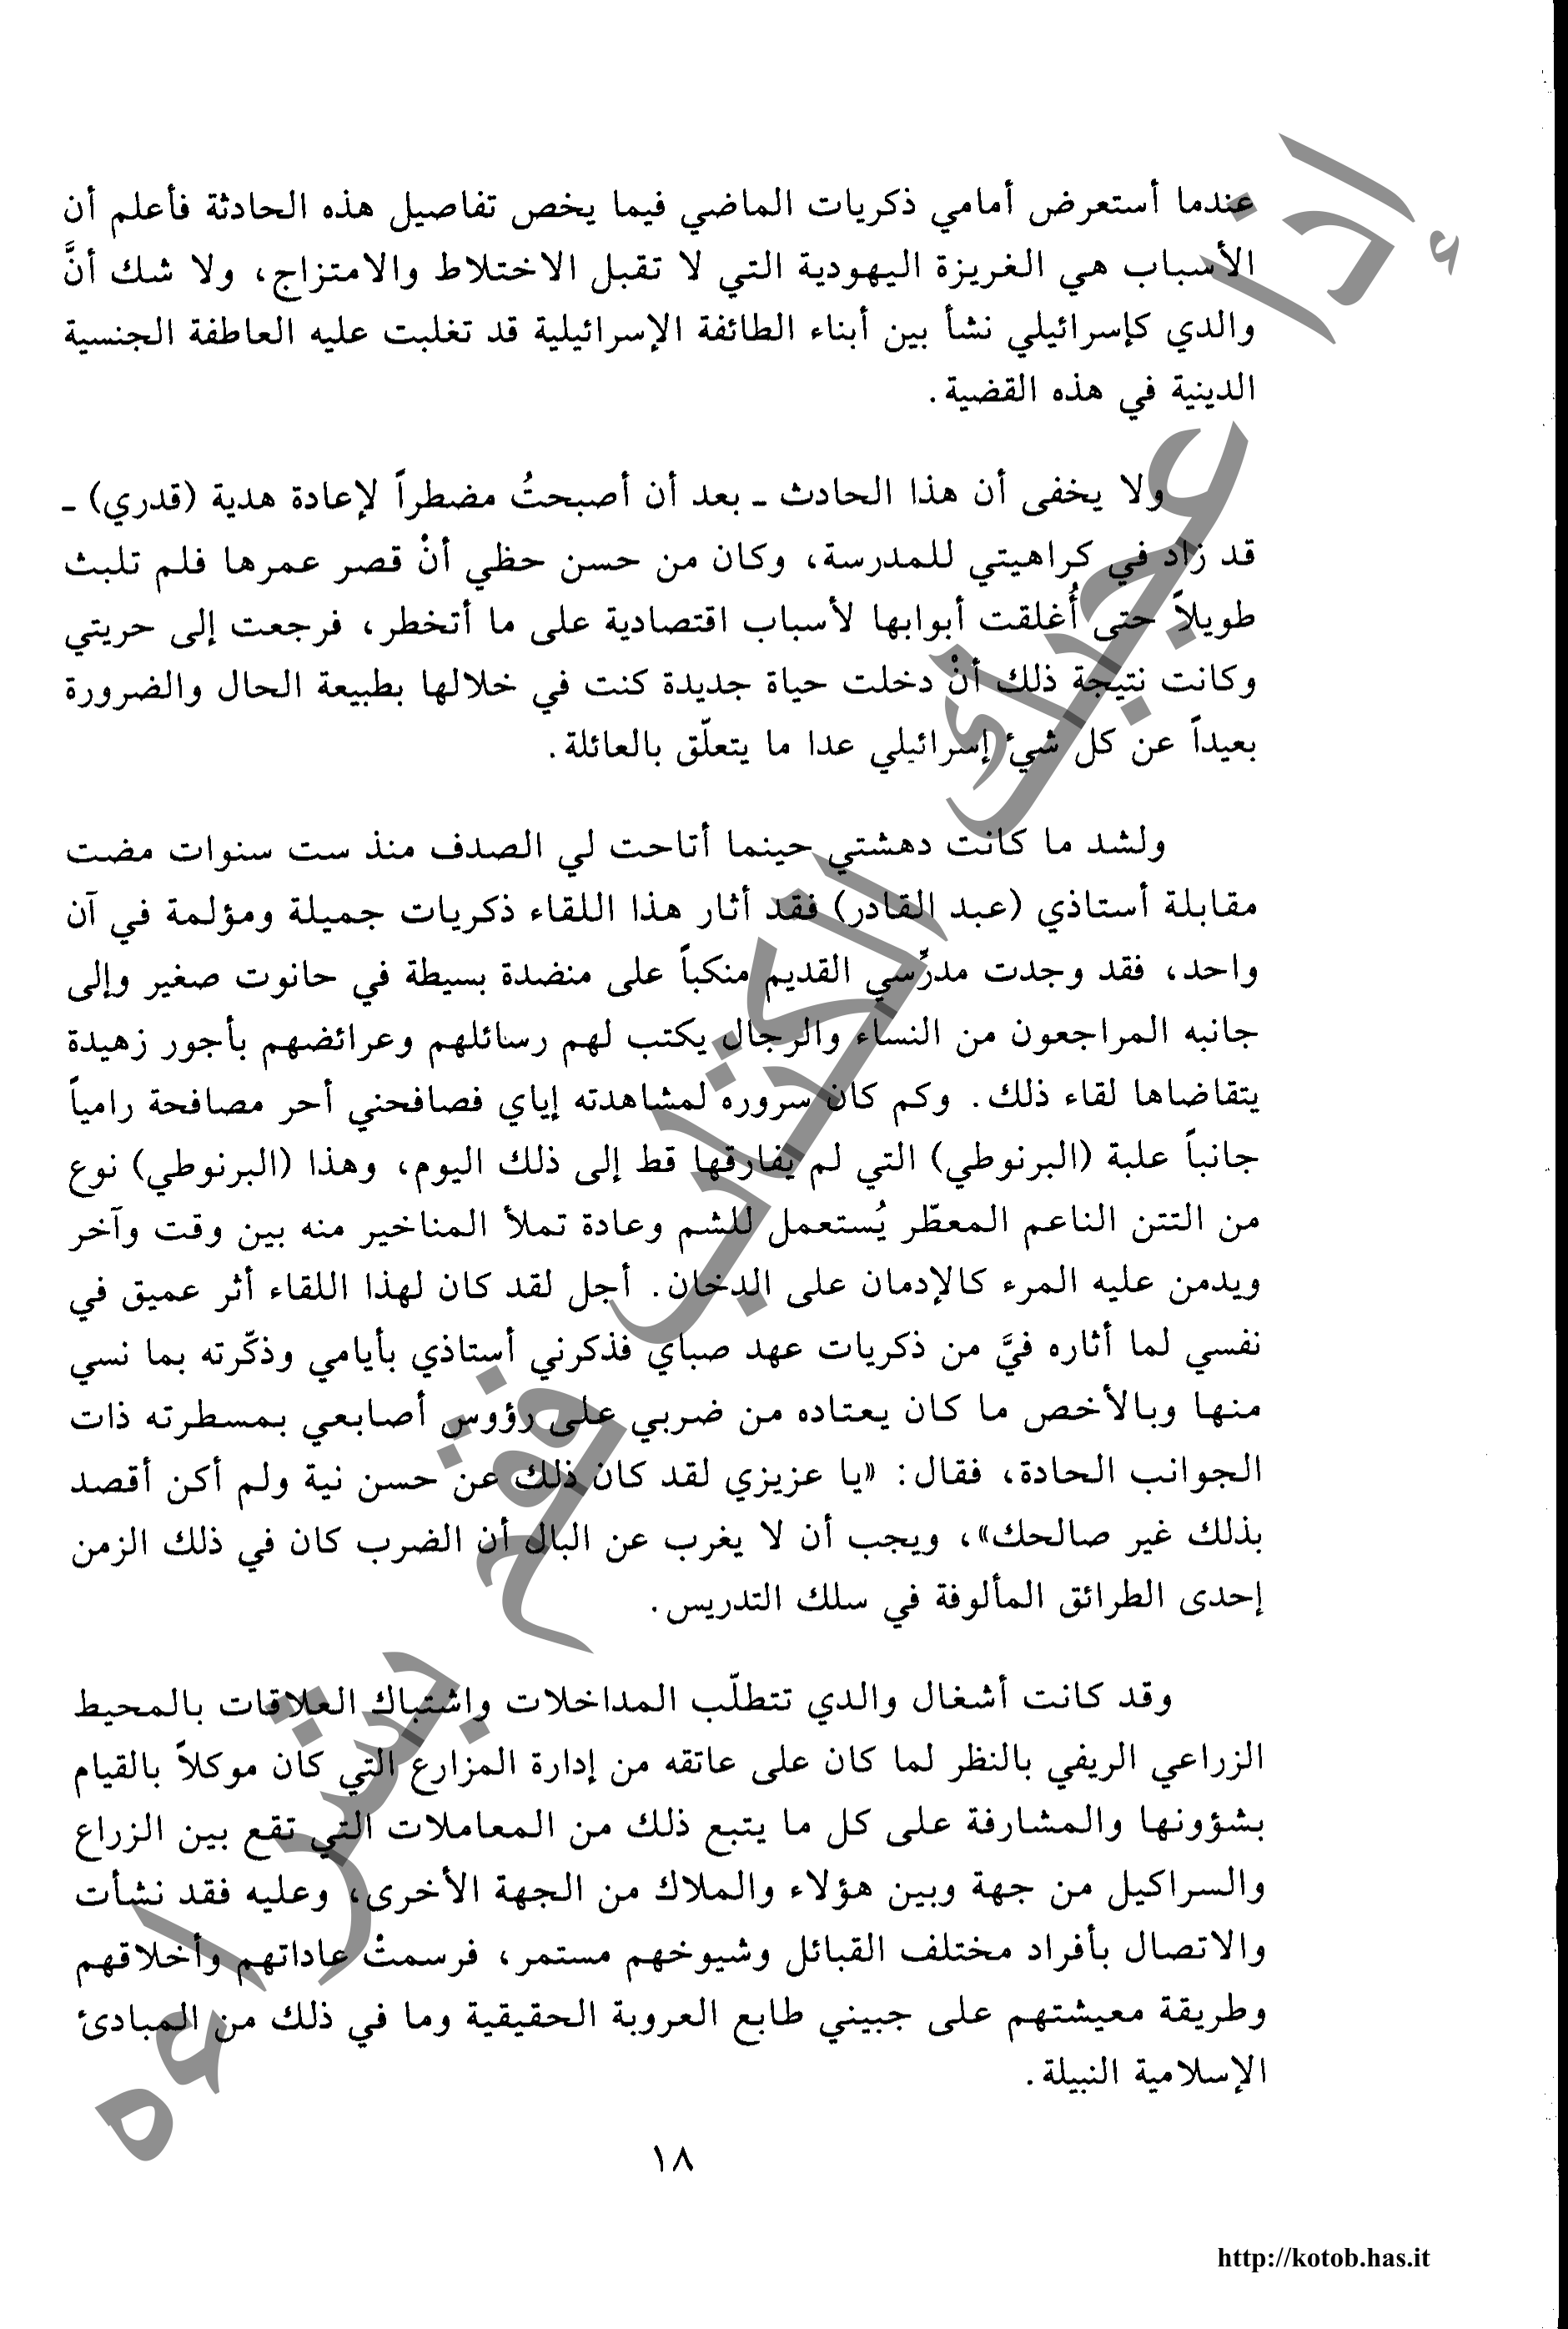 عندما أستعرض أمامي ذكريات الماضي فيما يخص تفاصيل هذه الحادثة فأعلم أن
الأسباب هي الغريزة اليهودية التي لا تقبل الاختلاط والامتزاج، ولا شك أنَّ
والدي كإسرائيلي نشأ بين أبناء الطائفة الإسرائيلية قد تغلبت عليه العاطفة الجنسية
الدينية في هذه القضية.
ولا يخفى أن هذا الحادث ـ بعد أن أصبحتُ مضطراً لإعادة هدية (قدري) ـ
قد زاد في كراهيتي للمدرسة، وكان من حسن حظي أنْ قصر عمرها فلم تلبث
طويلاً حتى أُغلقت أبوابها لأسباب اقتصادية على ما أتخطر، فرجعت إلى حريتي
وكانت نتيجة ذلك أنْ دخلت حياة جديدة كنت في خلالها بطبيعة الحال والضرورة
بعيداً عن كل شيئ إسرائيلي عدا ما يتعلّق بالعائلة.
ولشد ما كانت دهشتي حينما أتاحت لي الصدف منذ ست سنوات مضت
مقابلة أستاذي (عبد القادر) فقد أثار هذا اللقاء ذكريات جميلة ومؤلمة في آن
واحد، فقد وجدت مدرِّسي القديم منكباً على منضدة بسيطة في حانوت صغير وإلى
جانبه المراجعون من النساء والرجال يكتب لهم رسائلهم وعرائضهم بأجور زهيدة
يتقاضاها لقاء ذلك. وكم كان سروره لمشاهدته إياي فصافحني أحر مصافحة رامياً
جانباً علبة (البرنوطي) التي لم يفارقها قط إلى ذلك اليوم، وهذا (البرنوطي) نوع
من التتن الناعم المعطّر يُستعمل للشم وعادة تملأ المناخير منه بين وقت وآخر
ويدمن عليه المرء كالإدمان على الدخان. أجل لقد كان لهذا اللقاء أثر عميق في
نفسي لما أثاره فيَّ من ذكريات عهد صباي فذكرني أستاذي بأيامي وذكّرته بما نسي
منها وبالأخص ما كان يعتاده من ضربي على رؤوس أصابعي بمسطرته ذات
الجوانب الحادة، فقال: «يا عزيزي لقد كان ذلك عن حسن نية ولم أكن أقصد
بذلك غير صالحك»، ويجب أن لا يغرب عن البال أن الضرب كان في ذلك الزمن
إحدى الطرائق المألوفة في سلك التدريس.
وقد كانت أشغال والدي تتطلّب المداخلات واشتباك العلاقات بالمحيط
الزراعي الريفي بالنظر لما كان على عاتقه من إدارة المزارع التي كان موكلاً بالقيام
بشؤونها والمشارفة على كل ما يتبع ذلك من المعاملات التي تقع بين الزراع
والسراكيل من جهة وبين هؤلاء والملاك من الجهة الأخرى، وعليه فقد نشأت
والاتصال بأفراد مختلف القبائل وشيوخهم مستمر، فرسمتْ عاداتهم وأخلاقهم
وطريقة معيشتهم على جبيني طابع العروبة الحقيقية وما في ذلك من المبادئ
الإسلامية النبيلة.
١٨
إذا أعجبك الكتاب قم بشراءه
http://kotob.has.it